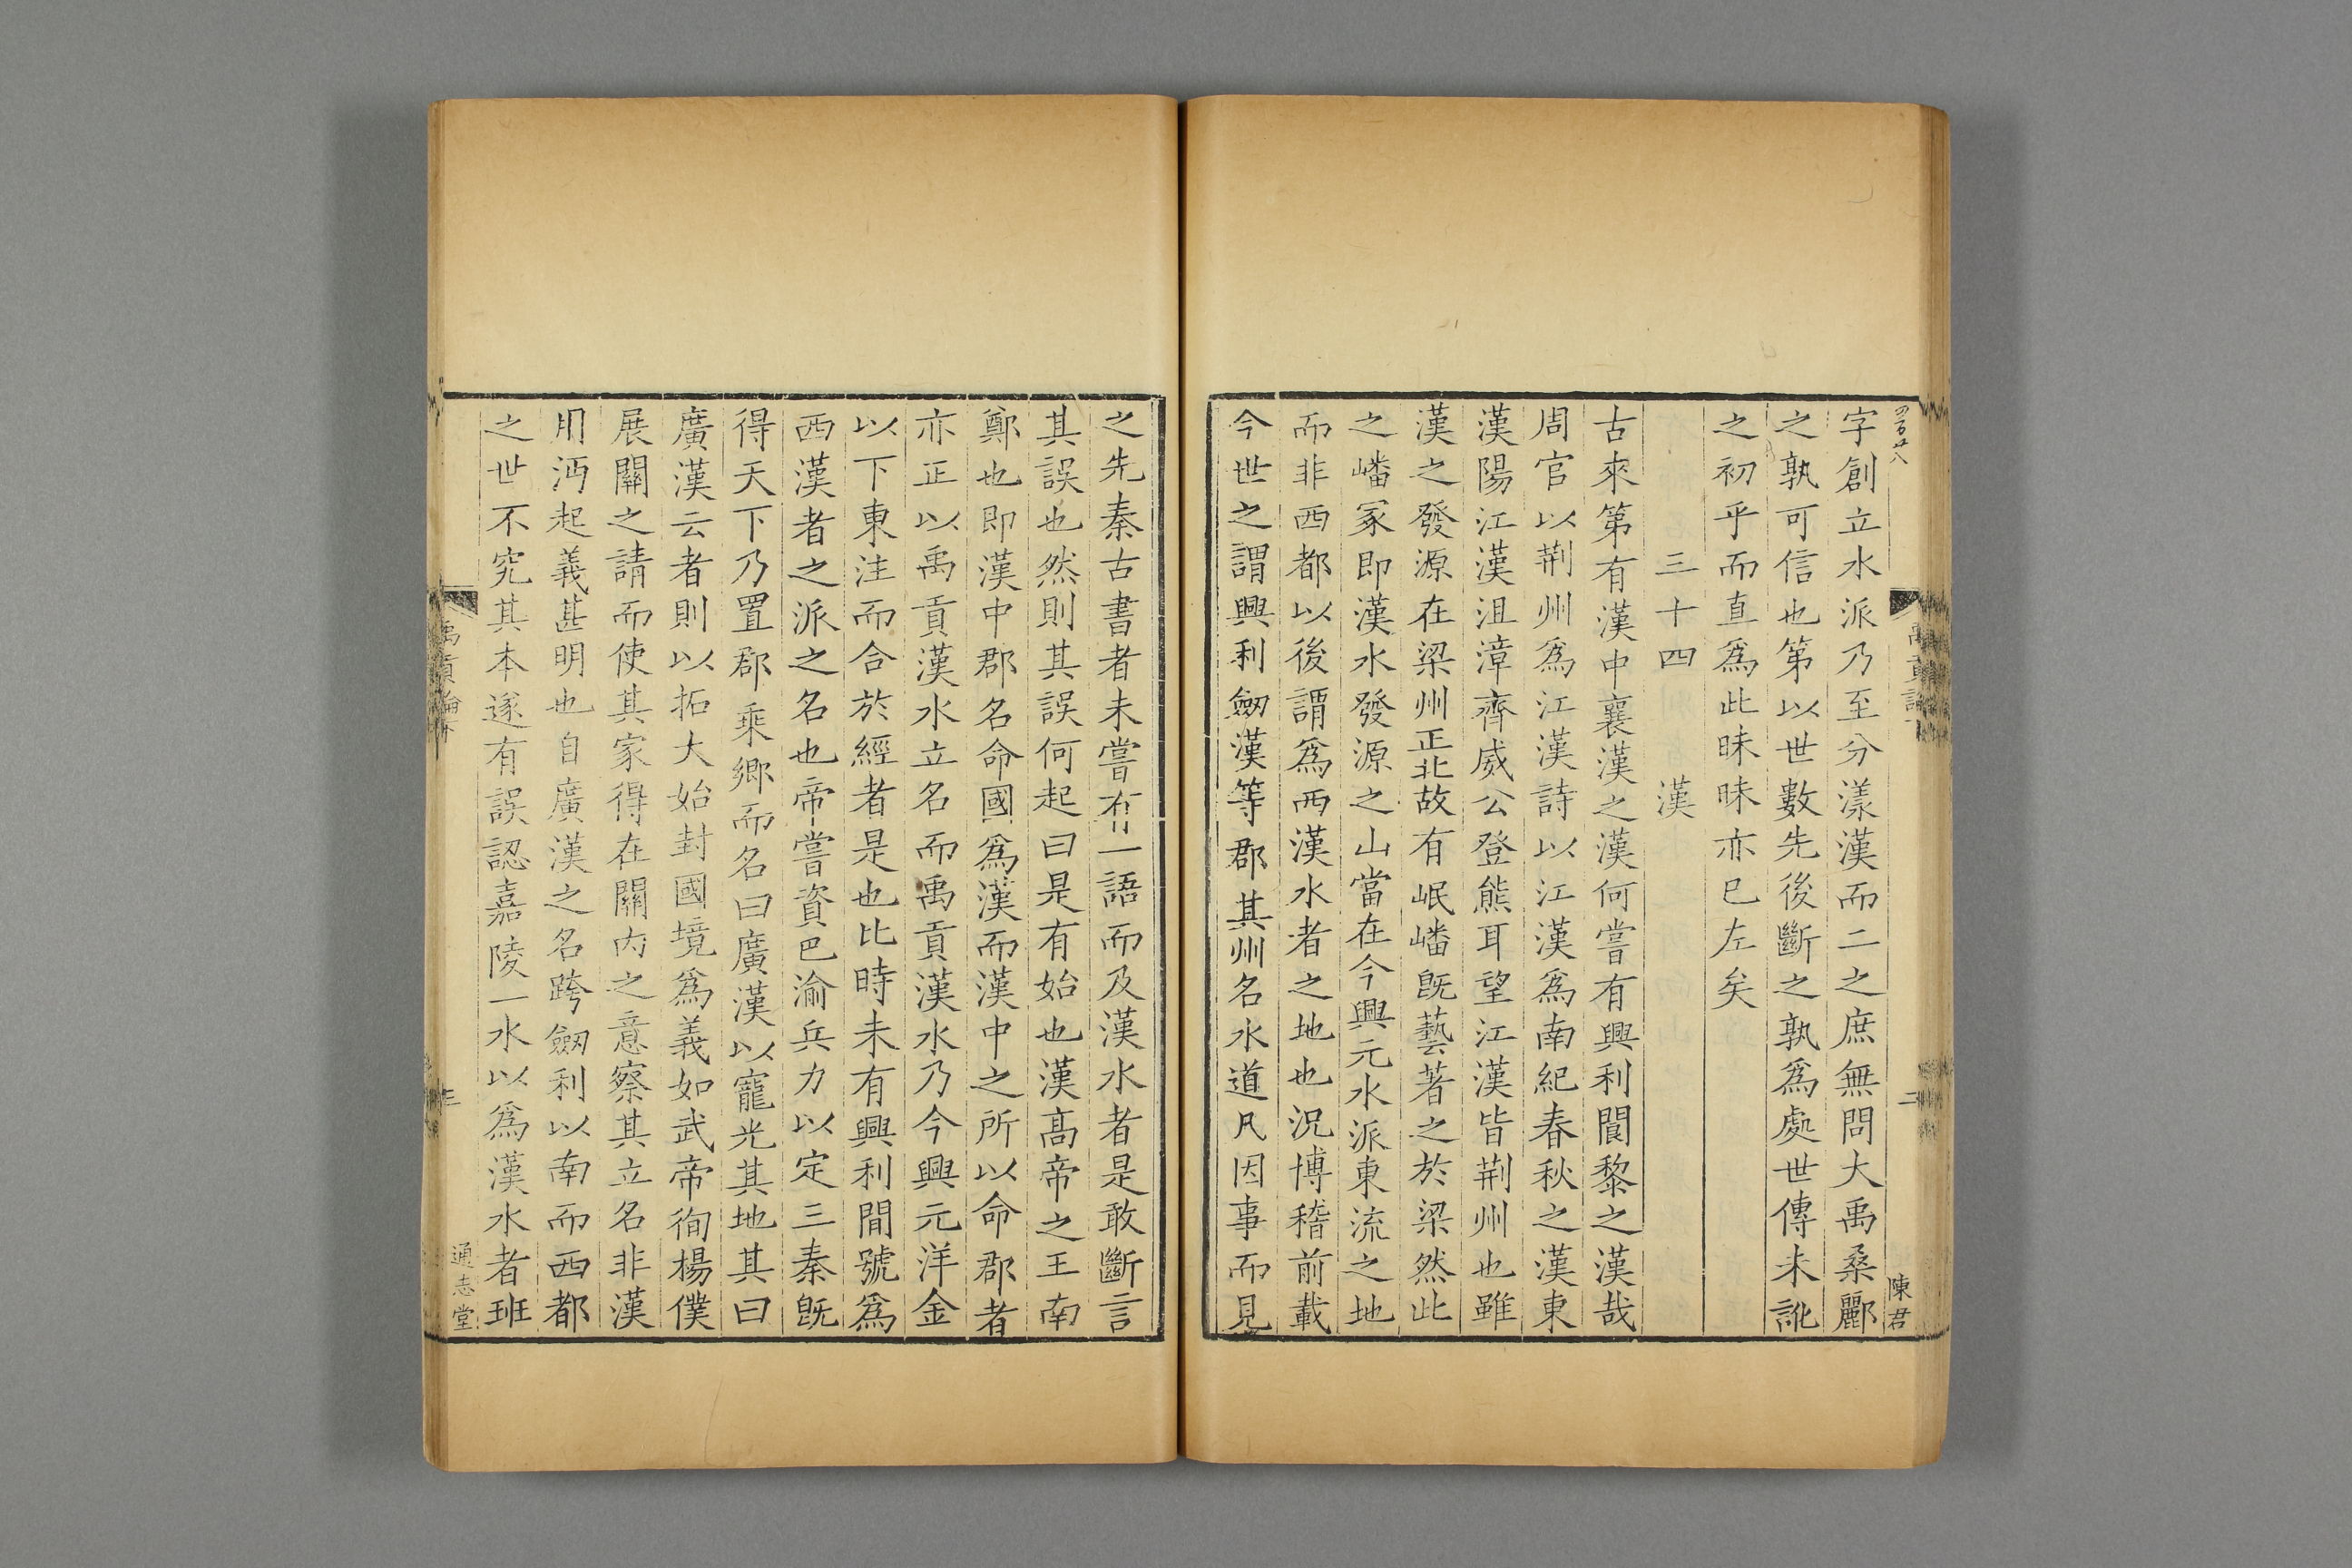 字創立水派乃至分漾漢而二之庶無問大禹桑酈
之孰可信也第以世數先後斷之孰爲處世傳未訛
之初乎而直爲此昧昧亦已左矣
三十四 漢
古來第有漢中襄漢之漢何嘗有興利閬黎之漢哉
周官以荆州爲江漢詩以江漢爲南紀春秋之漢東
漢陽江漢沮漳齊威公登熊耳望江漢皆荆州也雖
漢之發源在梁州正北故有岷嶓旣藝著之於梁然此
之嶓冢即漢水發源之山當在今興元水派東流之地
而非西都以後謂爲西漢水者之地也況博稽前載
今世之謂興利劒漢等郡其州名水道凡因事而見
陳君
之先秦古書者未嘗有一語而及漢水者是敢斷言
其誤也然則其誤何起曰是有始也漢高帝之王南
鄭也即漢中郡名命國爲漢而漢中之所以命郡者
亦正以禹貢漢水立名而禹貢漢水乃今興元洋金
以下東注而合於經者是也比時未有興利閬號爲
西漢者之派之名也帝嘗資巴渝兵力以定三秦旣
得天下乃置郡乘鄉而名曰廣漢以寵光其地其曰
廣漢云者則以拓大始封國境爲義如武帝徇楊僕
展關之請而使其家得在關内之意察其立名非漢
用沔起義甚明也自廣漢之名跨劒利以南而西都
之世不究其本遂有誤認嘉陵一水以爲漢水者班
禹貢論下
三
通志堂